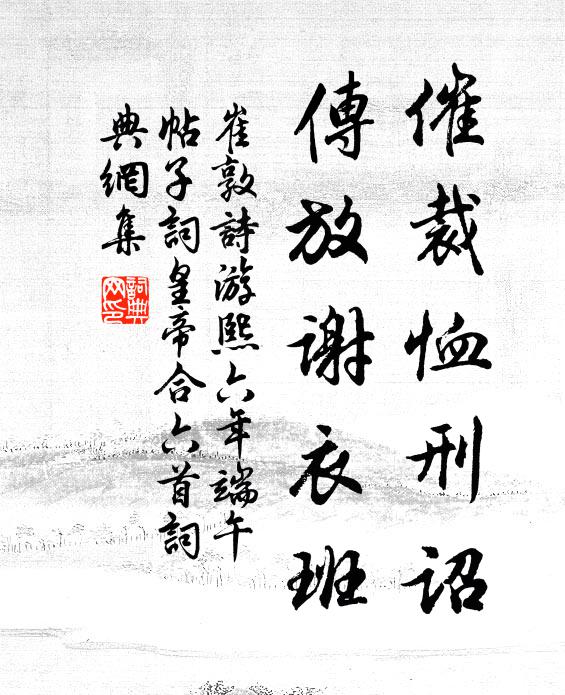 催裁恤刑詔
傳放謝衣班
崔敦詩游熙六年端午
帖子詞皇帝合六首詞
典網集
詞典
网印